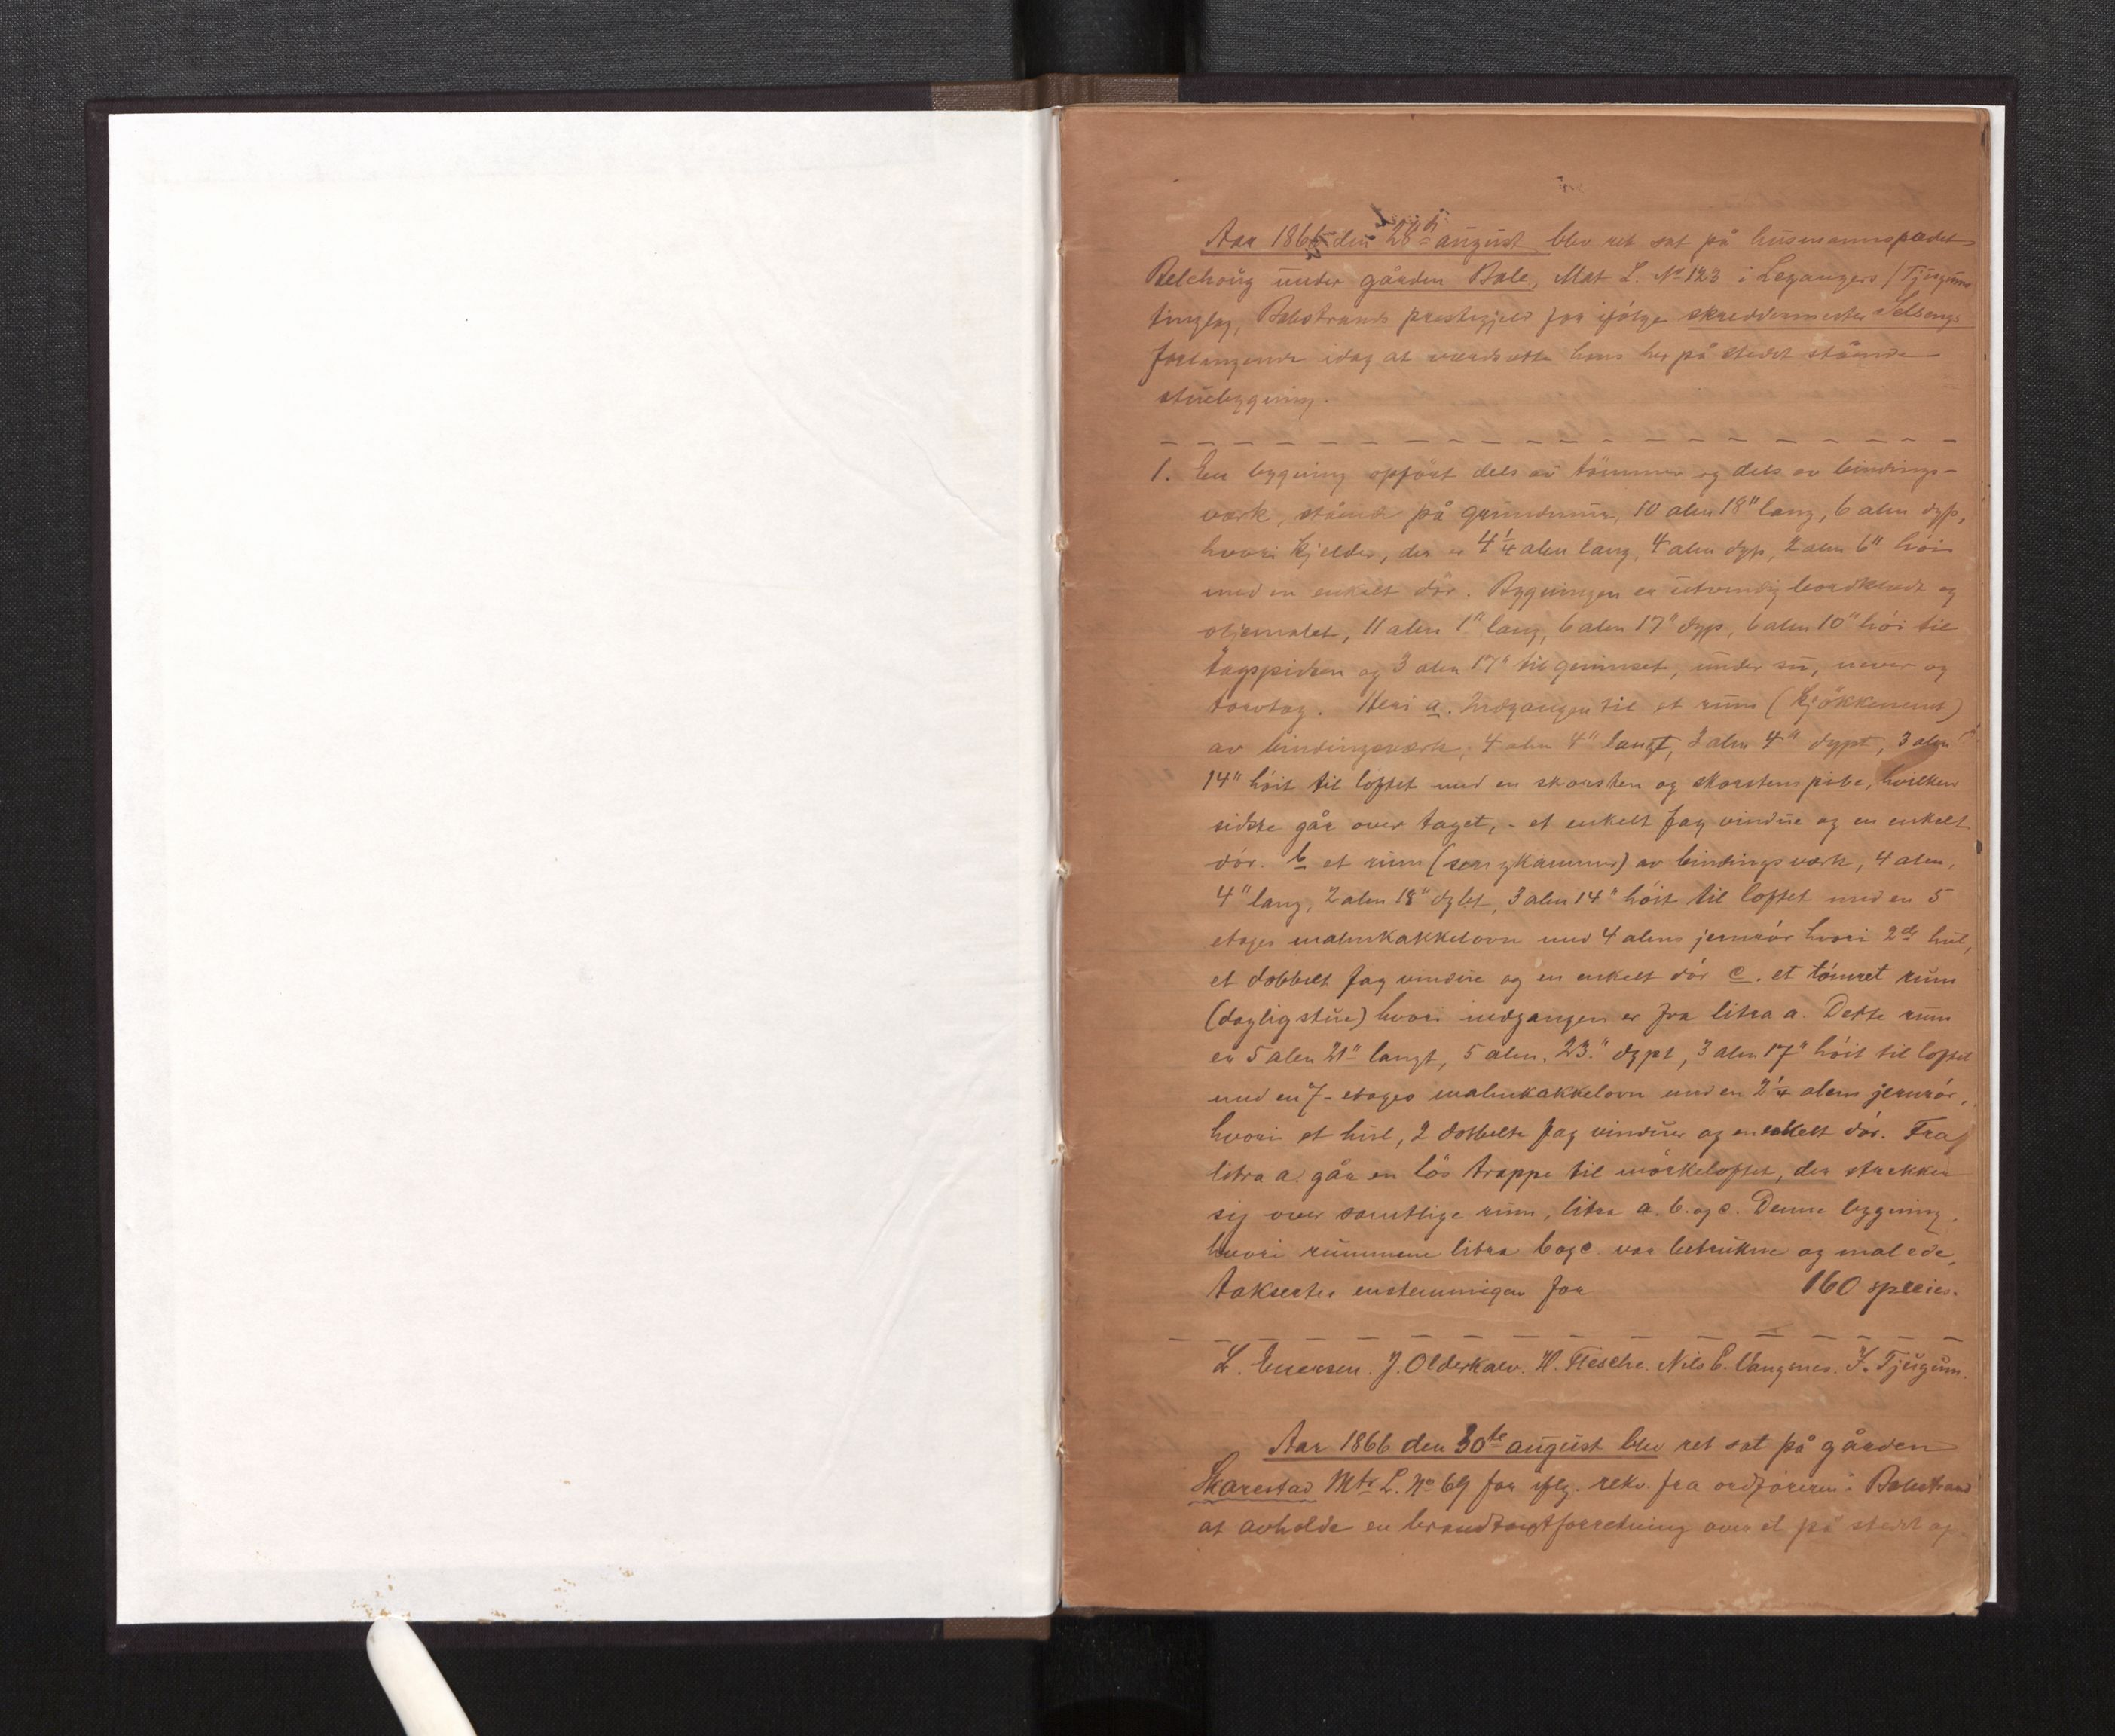 Aar 1866 den 28de august blev ret sat på husmannspladet
Belehoug under gården Bale, Mat L. No 123 i Leganger / Tjugums
tinglag, Balestrands prestegjeld for ifølge skreddermester
forlangende idag at værdsætte hans her på stedet stående
stuebygning.
1. En bygning opført dels av tömmer og dels av bindings-
værk, stående på grundmur, 10 alen 18" lang, 6 alen dyp,
hvori kjelder, der er 4 1/4 alen lang, 4 alen dyp, 2 alen 6" höi
med en enkelt dör. Bygningen er utvendig bordklædt og
oljemalet, 11 alen 1" lang, 6 alen 17" dyp, 6 alen 10" höi til
tagspidsen og 3 alen 17" til gesimset, under su, never og
torvtag. Heri a. Indgangen til et rum (kjökkenet)
av bindingsværk, 4 alen 4" langt, 3 alen 4" dypt, 3 alen
14" höit til loftet med en skorsten og skorstenspibe, hvilken
sidste går over taget, - et enkelt fag vindue og en enkelt
dör. b et rum (sengkammer) av bindingsværk, 4 alen,
4" lang, 2 alen 18" dybt, 3 alen 14" höit til loftet med en 5
etages malmkakkelovn med 4 alens jernrör hvori 2de hul,
et dobbelt fag vindue og en enkelt dör c. et tömret rum
(dagligstue) hvori indgangen er fra litra a. Dette rum
er 5 alen 21" langt, 5 alen. 23." dypt, 3 alen 17" höit til loftet
med en 7-etages malmkakkelovn med en 2 1/4 alens jernrör,
hvori et hul, 2 dobbelte fag vinduer og en enkelt dör. Fra
litra a. går en lös trappe til mörkeloftet, der strekker
sig over samtlige rum, litra a. b. og c. Denne bygning,
hvori rummene litra b og c. var betrukne og malede,
takseres enstemmigen for 160 specis.
L. Enersen. J. Olderkalv. H. Flesche. Nils E. Vangsnes. J. Tjugum.
Aar 1866 den 30te august blev ret sat på gården
Skarestad Mtr L. No 69 for iflg. rekv. fra ordföreren i Balestrand
at avholde en brandtaxtforretning over et på stedet op